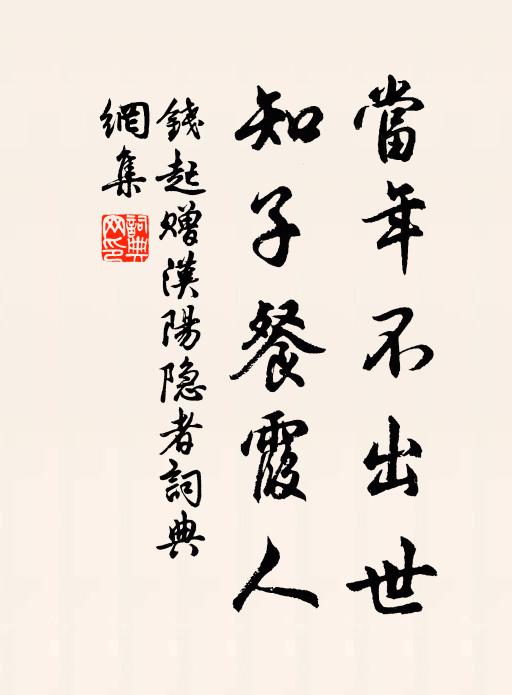 當年不出世
知子餐霞人
錢起贈漢陽隐者詞典
網集
詞典
网印